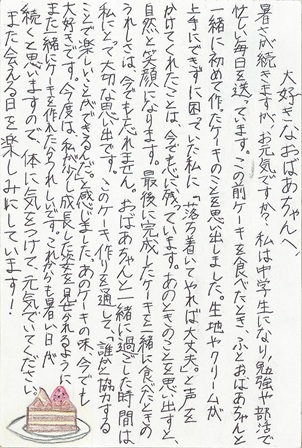 大好きなおばあちゃんへ、
暑さが続きますが、お元気ですか？私は中学生になり勉強や部活で
忙しい毎日を送っています。この前ケーキを食べたとき、ふとおばあちゃんと
一緒に初めて作ったケーキのことを思い出しました。生地やクリームが
上手にできずに困っていた私に、「落ち着いてやれば大丈夫。」と声を
かけてくれたことは、今でも心に残っています。あのときのことを思い出すと、
自然と笑顔になります。最後に完成したケーキを一緒に食べたときの
うれしさは、今でも忘れません。おばあちゃんと一緒に過ごした時間は
私にとって大切な思い出です。このケーキ作りを通して、「誰かと協力する
ことで楽しいことができるんだ。」と感じました。あのケーキの味、今でも
大好きです。今度は、私が少し成長した姿を見せれるように
また一緒にケーキを作れたらうれしいです。これからも暑い日が
続くと思いますので、体に気をつけて、元気でいてください。
また会える日を楽しみにしています！